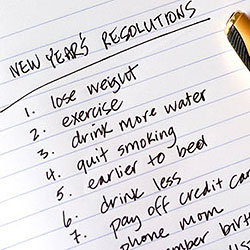 NEW YEAR'S RESOLUTIONS
1. lose weight
2. exercise
3. drink more water
4. quit smoking
5. earlier to bed
6. drink less
7. pay off credit car
phone mom
mber birth